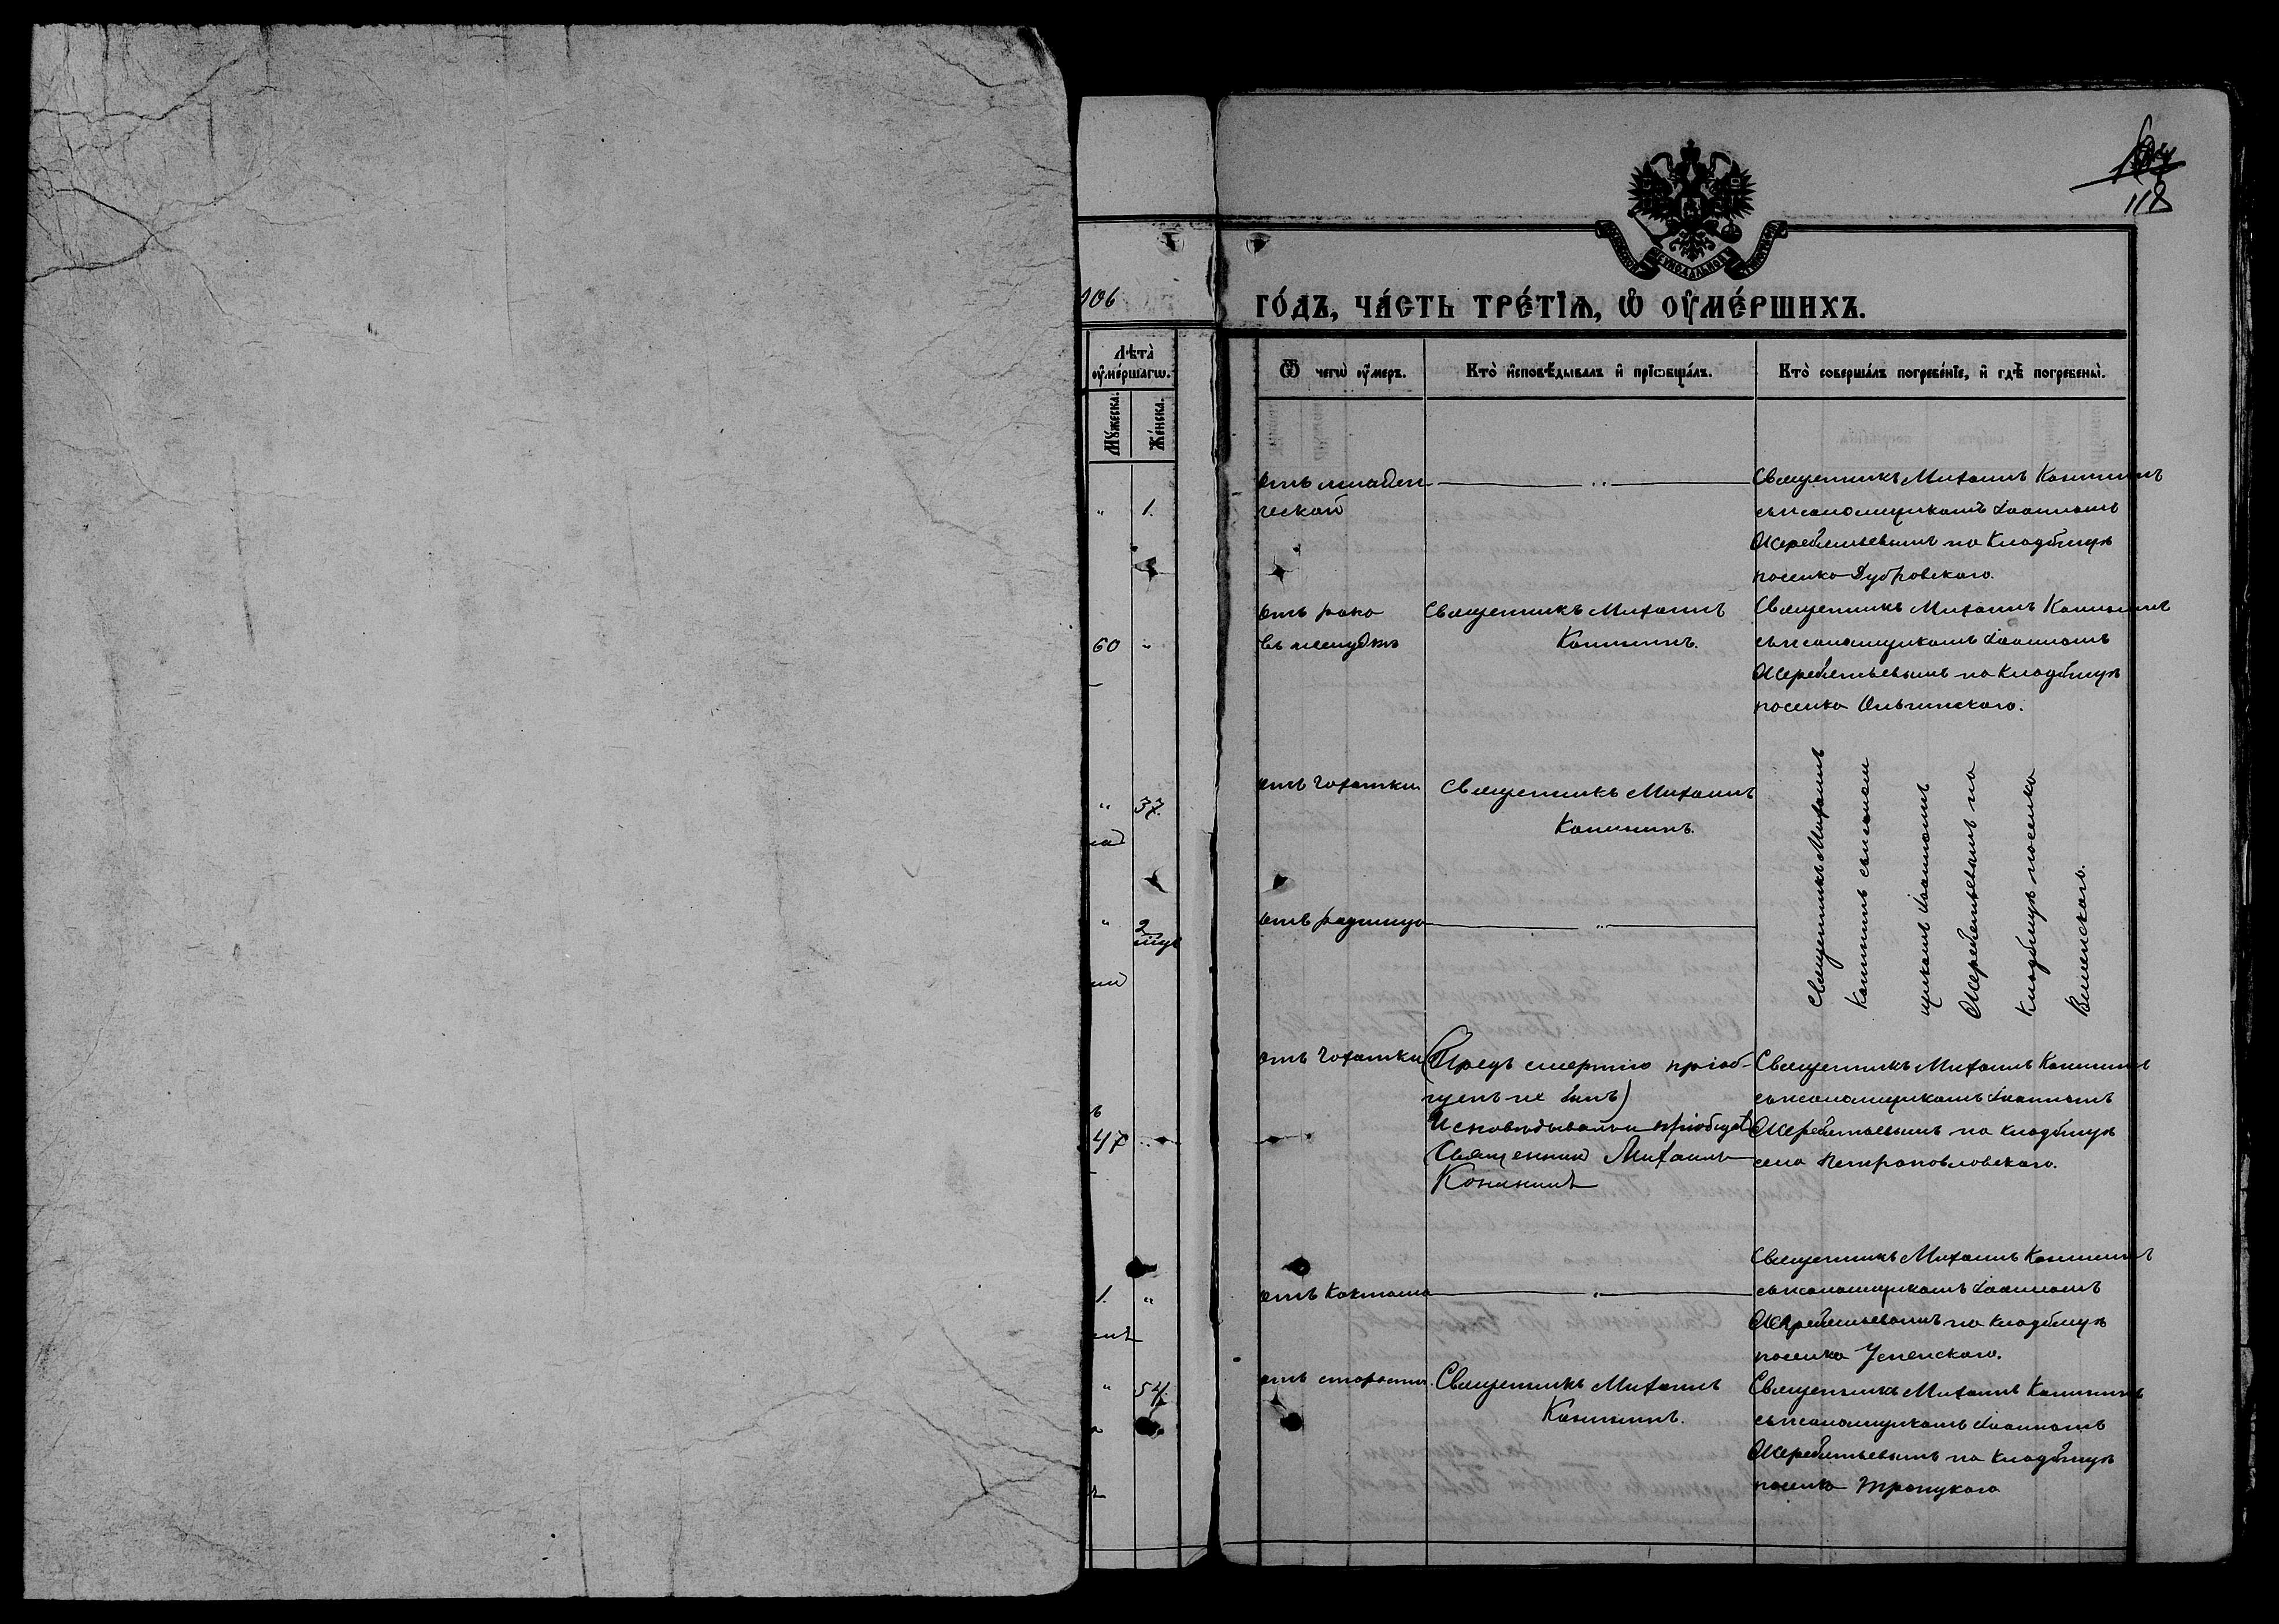 118
906
ГО́ДЪ, ЧА́СТЬ ТРЕ́ТЇѦ, Ѡ҆ ОУ҆МЕ́РШИХЪ.
Лѣта̀ оу҆ме́ршагѡ.
Мꙋ́жеска.
Же́нска.
Ѿ чегѡ̀ оу҆́меръ.
Кто̀ и҆сповѣ́дывалъ и҆ прїѡбща́лъ.
Кто̀ соверша́лъ погребе́нїе, и҆ гдѣ̀ погребены̀.
" 1.
отъ младен
ческой
"
Священникъ Михаилъ Конининъ
съ псаломщикомъ Іоанномъ
Жеребятьевымъ на кладбищѣ
поселка Дубровскаго.
60 "
отъ рака
въ желудкѣ
Священникъ Михаилъ
Конининъ.
Священникъ Михаилъ Конининъ
съ псаломщикомъ Іоанномъ
Жеребятьевымъ на кладбищѣ
поселка Ольгинскаго.
" 37.
отъ чахотки
Священникъ Михаилъ
Конининъ.
" 2
отъ родимца
"
Священникъ Михаилъ
Конининъ съ псалом
щикомъ Іоанномъ
Жеребятьевымъ на
кладбищѣ поселка
47
отъ чахотки
(Предъ смертію пріоб-
щенъ не былъ)
Исповѣдывалъ и пріобщалъ
Священникъ Михаилъ
Конининъ
Священникъ Михаилъ Конининъ
съ псаломщикомъ Іоанномъ
Жеребятьевымъ на кладбищѣ
села Петропавловскаго.
1. "
отъ коклюша
"
Священникъ Михаилъ Конининъ
съ псаломщикомъ Іоанномъ
Жеребятьевымъ на кладбищѣ
поселка Успенскаго.
" 54.
отъ старости.
Священникъ Михаилъ
Конининъ.
Священникъ Михаилъ Конининъ
съ псаломщикомъ Іоанномъ
Жеребятьевымъ на кладбищѣ
поселка Троицкаго